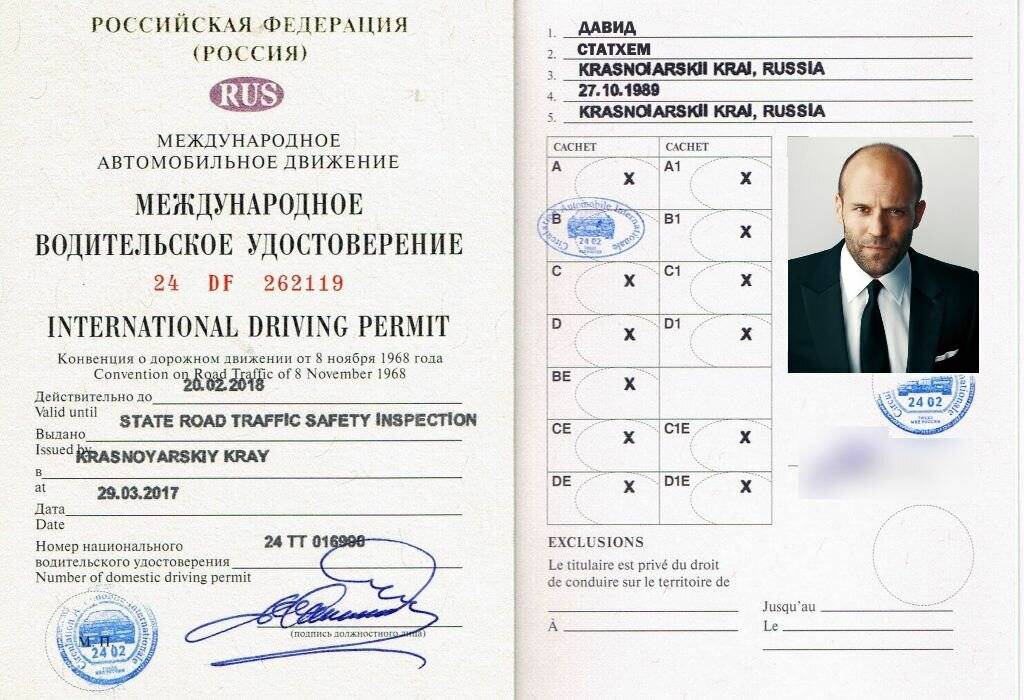 РОССИЙСКАЯ ФЕДЕРАЦИЯ
(РОССИЯ)
RUS
МЕЖДУНАРОДНОЕ
АВТОМОБИЛЬНОЕ ДВИЖЕНИЕ
МЕЖДУНАРОДНОЕ
ВОДИТЕЛЬСКОЕ УДОСТОВЕРЕНИЕ
24 DF 262119
INTERNATIONAL DRIVING PERMIT
Конвенция о дорожном движении от 8 ноября 1968 года
Convention on Road Traffic of 8 November 1968
20.02.2018
Действительно до
Valid until
STATE ROAD TRAFFIC SAFETY INSPECTION
Выдано
Issued by
KRASNOYARSKIY KRAY
в
at
29.03.2017
Дата
Date
24 TT 016990
Номер национального
водительского удостоверения
Number of domestic driving permit
(подпись должностного лица)
М П
Circulation Automobile Internationale
24 02
1. ДАВИД
2. СТАТХЕМ
3. KRASNOIARSKII KRAI, RUSSIA
4. 27.10.1989
5. KRASNOIARSKII KRAI, RUSSIA
CACHET CACHET
A X A1 X
B B1 X
Circulation Automobile Internationale
24 02
C X C1 X
D X D1 X
BE X
CE X C1E X
DE X D1E X
24 02
EXCLUSIONS
Le titulaire est privé du droit
de conduire sur le territoire de
Jusqu'au
À Le